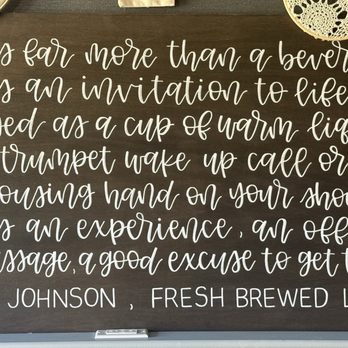 s far more than a bever
s an invitation to life
ed as a cup of warm liq
trumpet wake up call or
ousing hand on your shou
s an experience, an off
ssage, a good excuse to get t
JOHNSON, FRESH BREWED L